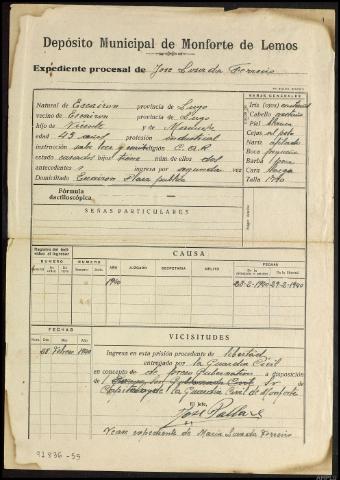 Depósito Municipal de Monforte de Lemos
Expediente procesal de José Losada Ferreiro
SEÑAS GENERALES
Natural de Escairon provincia de Lugo
Iris (ojos) castaños
vecino de Escairon provincia de Lugo
Cabello castaño
hijo de Vicente y de Manuela
Piel blanca
edad 43 años profesión industrial
Cejas al pelo
instrucción sabe leer y escribir religión C. A. R
Nariz afilada
estado casado hijos tiene núm. de ellos dos
Boca pequeña
antecedentes ingresa por segunda vez
Barba
Domiciliado Escairon Plaza publica
Cara larga
Talla
Fórmula
dactiloscópica
SEÑAS PARTICULARES
Registro del índividuo al ingresar
CAUSA
NUMERO
NUMERO
FECHAS
AÑO
JUZGADO
SECRETARIA
DELITO
De la libertad
1940
28-2-1940
29-2-1940
FECHAS
VICISITUDES
Núm.
Día
Mes
Año
28 Febrero 1940
Ingresa en esta prisión procedente de libertad
entregado por la Guardia Civil
en concepto de preso Gubernativo a disposición
de l Sr.
de la Guardia Civil de Monforte
El Jefe,
José
Vean expediente de Maria Losada Ferreiro
91836-55